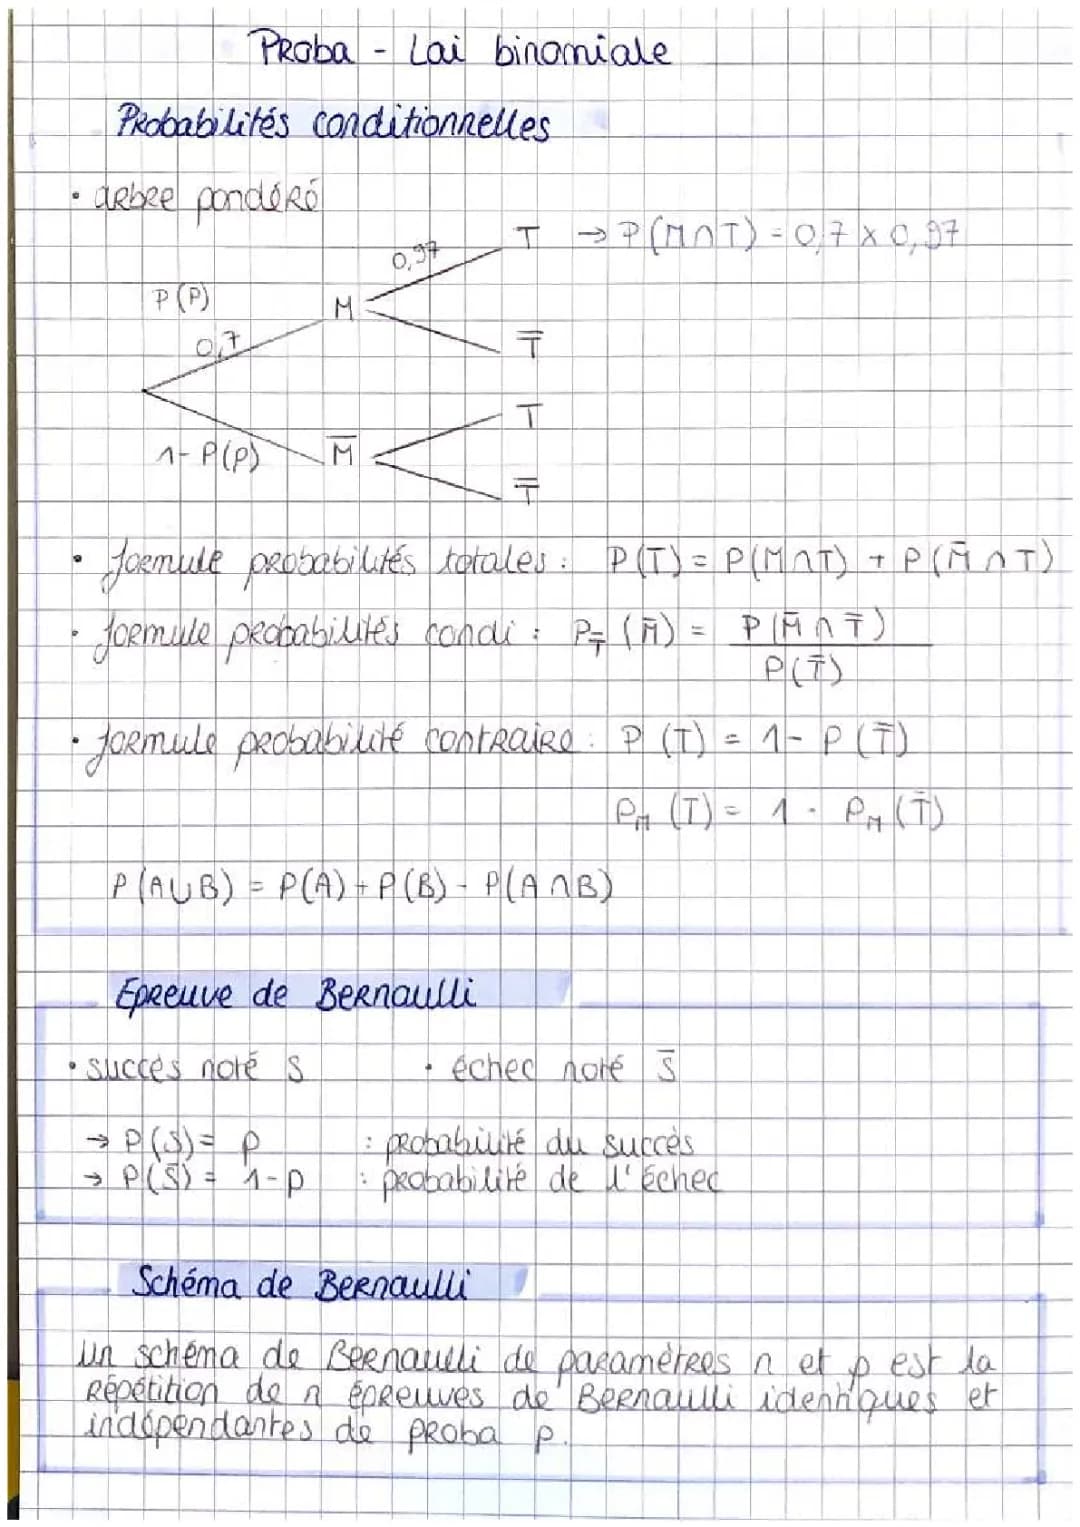 Proba - Loi binomiale
Probabilités conditionnelles
• arbre pondéré
T → P(M∩T) = 0,7 x 0,97
0,97
P(P)
M
0,7
T̅
T
1- P(P)
M̅
T̅
• formule probabilités totales : P(T) = P(M∩T) + P(M̅∩T)
• formule probabilités condi : P_T̅ (M̅) = P(M̅∩T̅)
P(T̅)
• formule probabilité contraire : P (T) = 1- P(T̅)
P_M (T) = 1 - P_M (T̅)
P(A∪B) = P(A) + P(B) - P(A∩B)
Epreuve de Bernoulli
• succès noté S • échec noté S̅
→ P(S) = p : probabilité du succès
→ P(S̅) = 1-p : probabilité de l'échec
Schéma de Bernoulli
un schéma de Bernoulli de paramètres n et p est la
répétition de n épreuves de Bernoulli identiques et
indépendantes de proba p.